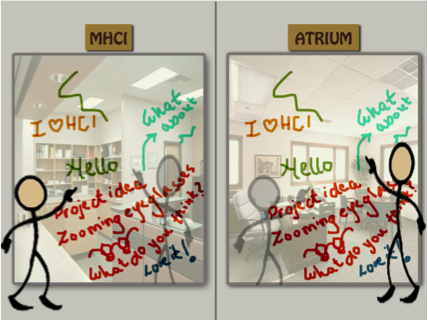 MHCI
I ♡ HCI
What
about
Hello
Project idea
Zooming eyeglasses
What do you think?
Love it!
ATRIUM
I ♡ HCI
What
about
Hello
Project idea
Zooming eyegl
What do you
Love it!